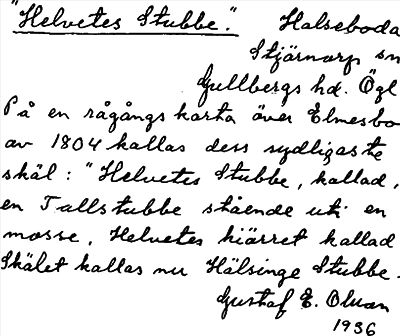 "Helvetes Stubbe". Halseboda
Stjärnorp sn
Gullbergs hd. Ögl
På en rågångs karta över Elmesbo
av 1804 kallas dess sydligaste
skäl: "Helvetes Stubbe, kallad,
en Tallstubbe stående uti en
mosse, Helvetes kiärret kallad
Skälet kallas nu Hälsinge Stubbe.
Gustaf E. Olson
1936